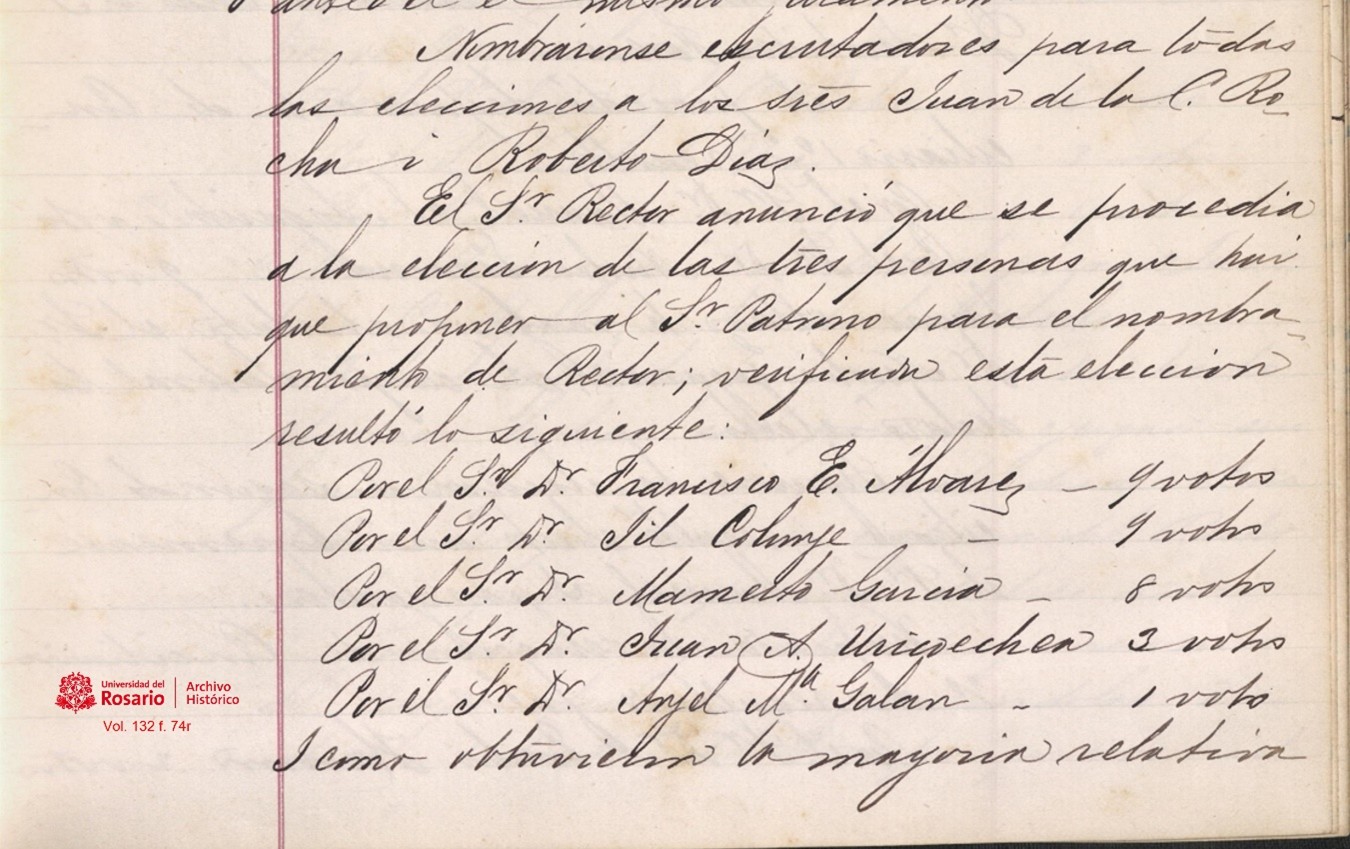 el mismo juramento
Nombráronse escrutadores para todas
las elecciones a los sres Juan de la C. Ro-
cha i Roberto Díaz.
El Sr. Rector anunció que se procedia
a la eleccion de las tres personas que hai
que proponer al Sr. Patrono para el nombra-
miento de Rector; verificada esta eleccion
resultó lo siguiente:
Por el Sr. Dr. Francisco E. Álvarez — 9 votos
Por el Sr. Dr. Jil Colunje — 9 votos
Por el Sr. Dr. Mamerto Garcia — 8 votos
Por el Sr. Dr. Juan A. Uricoechea 3 votos
Por el Sr. Dr. Anjel Ma. Galan - 1 voto
I como obtuvieron la mayoria relativa
Universidad del
Rosario
Archivo
Histórico
Vol. 132 f. 74r